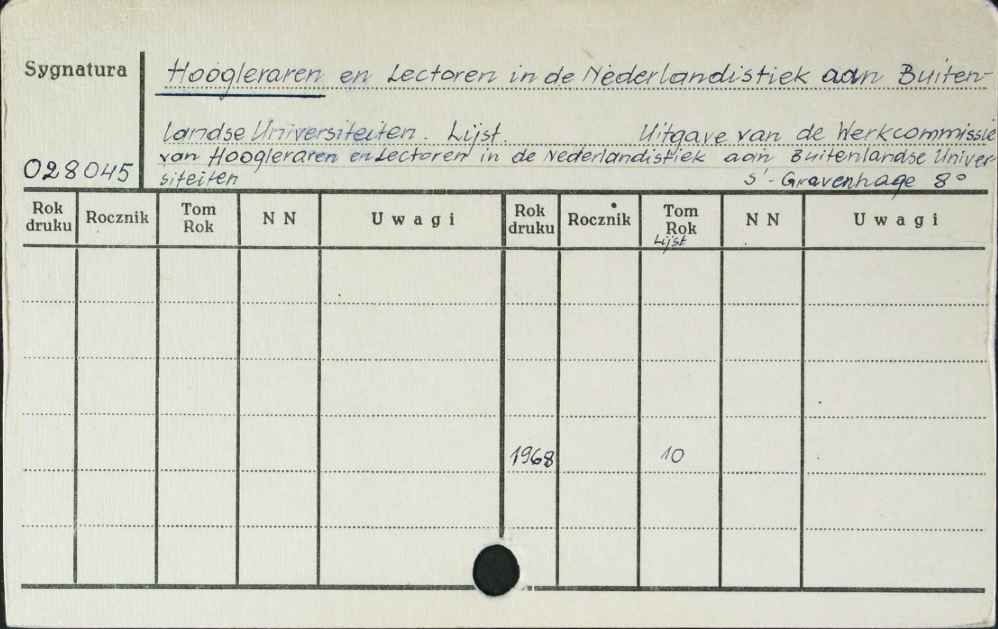 Sygnatura
Hoogleraren en Lectoren in de Nederlandistiek aan Buiten-
landse Universiteiten. Lijst. Uitgave van de Werkcommissie
van Hoogleraren en Lectoren in de Nederlandistiek aan Buitenlandse Univer-
028045 siteiten s'-Gravenhage 8°
Rok druku Rocznik Tom Rok NN Uwagi Rok druku Rocznik Tom Rok NN Uwagi
Lijst
1968 10